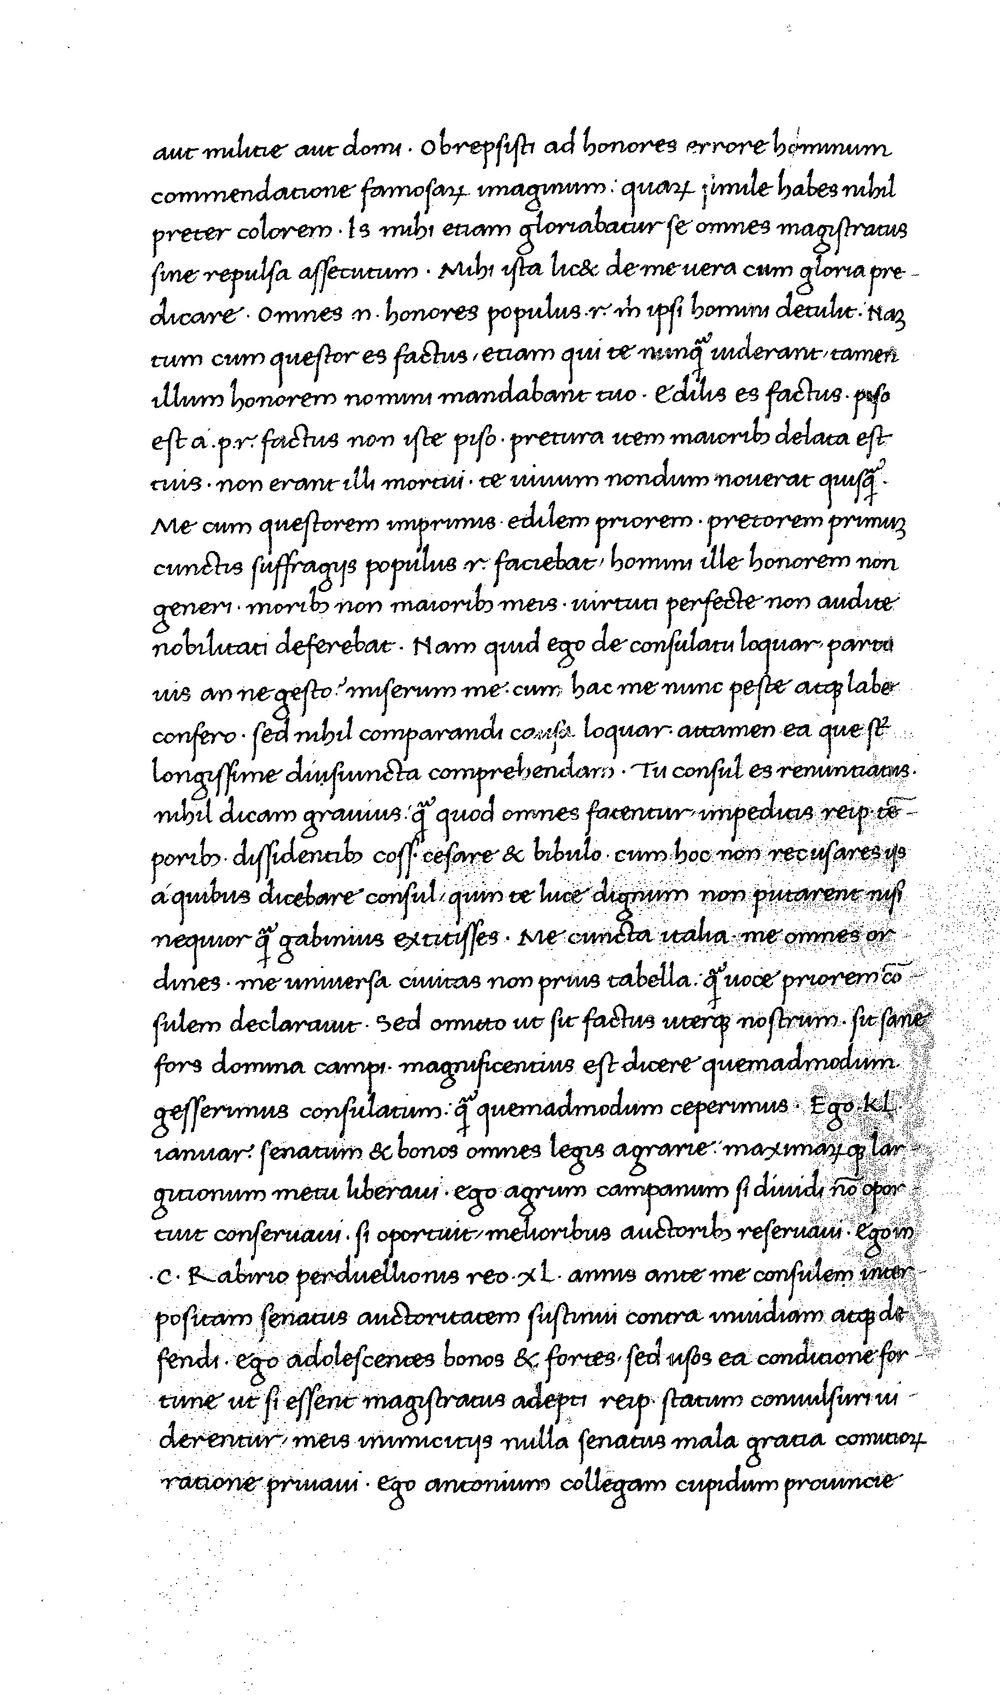 aut militie aut domi · Obrepsisti ad honores errore hominum
commendatione famosaꝝ imaginum : quaꝝ simile habes nihil
preter colorem · Is mihi etiam gloriabatur se omnes magistratus
sine repulsa assecutum · Mihi ista lic& de me vera cum gloria pre-
dicare · Omnes .n. honores populus .r. m̄ ipsi homini detulit : Naꝫ
tum cum questor es factus, etiam qui te nunqͣ viderant, tamen
illum honorem nomini mandabant tuo · Edilis es factus · piso
est a .p.r. factus non iste piso · pretura item maioribꝫ delata est
tuis · non erant illi mortui · te vivum nondum noverat quisqͣ ·
Me cum questorem imprimis · edilem priorem · pretorem primuꝫ
cunctis suffragijs populus .r. faciebat, homini ille honorem non
generi · moribꝫ non maioribꝫ meis · virtuti perfecte non audite
nobilitati deferebat · Nam quid ego de consulatu loquar, parto
vis an ne gesto? miserum me · cum hac me nunc peste atqꝫ labe
confero · sed nihil comparandi causa loquar · attamen ea que st̄
longissime diusiuncta comprehendam · Tu consul es renuntiatus ·
nihil dicam gravius : qͣ quod omnes fatentur, impeditis reip· tē-
poribꝫ · dissidentibꝫ coss· cesare & bibulo · cum hoc non recusares ijs
a quibus dicebare consul, quin te luce dignum non putarent nisi
nequior qͣ gabinius extitisses · Me cuncta italia · me omnes or-
dines · me universa civitas non prius tabella : qͣ voce priorem cō-
sulem declaravit · Sed omitto ut sit factus uterqꝫ nostrum · sit sane
fors domina campi · magnificentius est dicere quemadmodum
gesserimus consulatum : qͣ quemadmodum ceperimus · Ego .kl.
ianuar· senatum & bonos omnes legis agrarie : maximaꝝqꝫ lar-
gitionum metu liberavi · ego agrum campanum si dividi nō opor-
tuit conservavi · si oportuit, melioribus auctoribꝫ reservavi · Ego in
· C · Rabirio perduellionis reo · xl · annis ante me consulem inter-
positam senatus auctoritatem sustinui contra invidiam atqꝫ de-
fendi · ego adolescentes bonos & fortes, sed usos ea conditione for-
tune ut si essent magistratus adepti reip· statum convulsuri vi-
derentur, meis inimicitijs nulla senatus mala gratia comitioꝝ
ratione privavi · Ego antonium collegam cupidum provincie